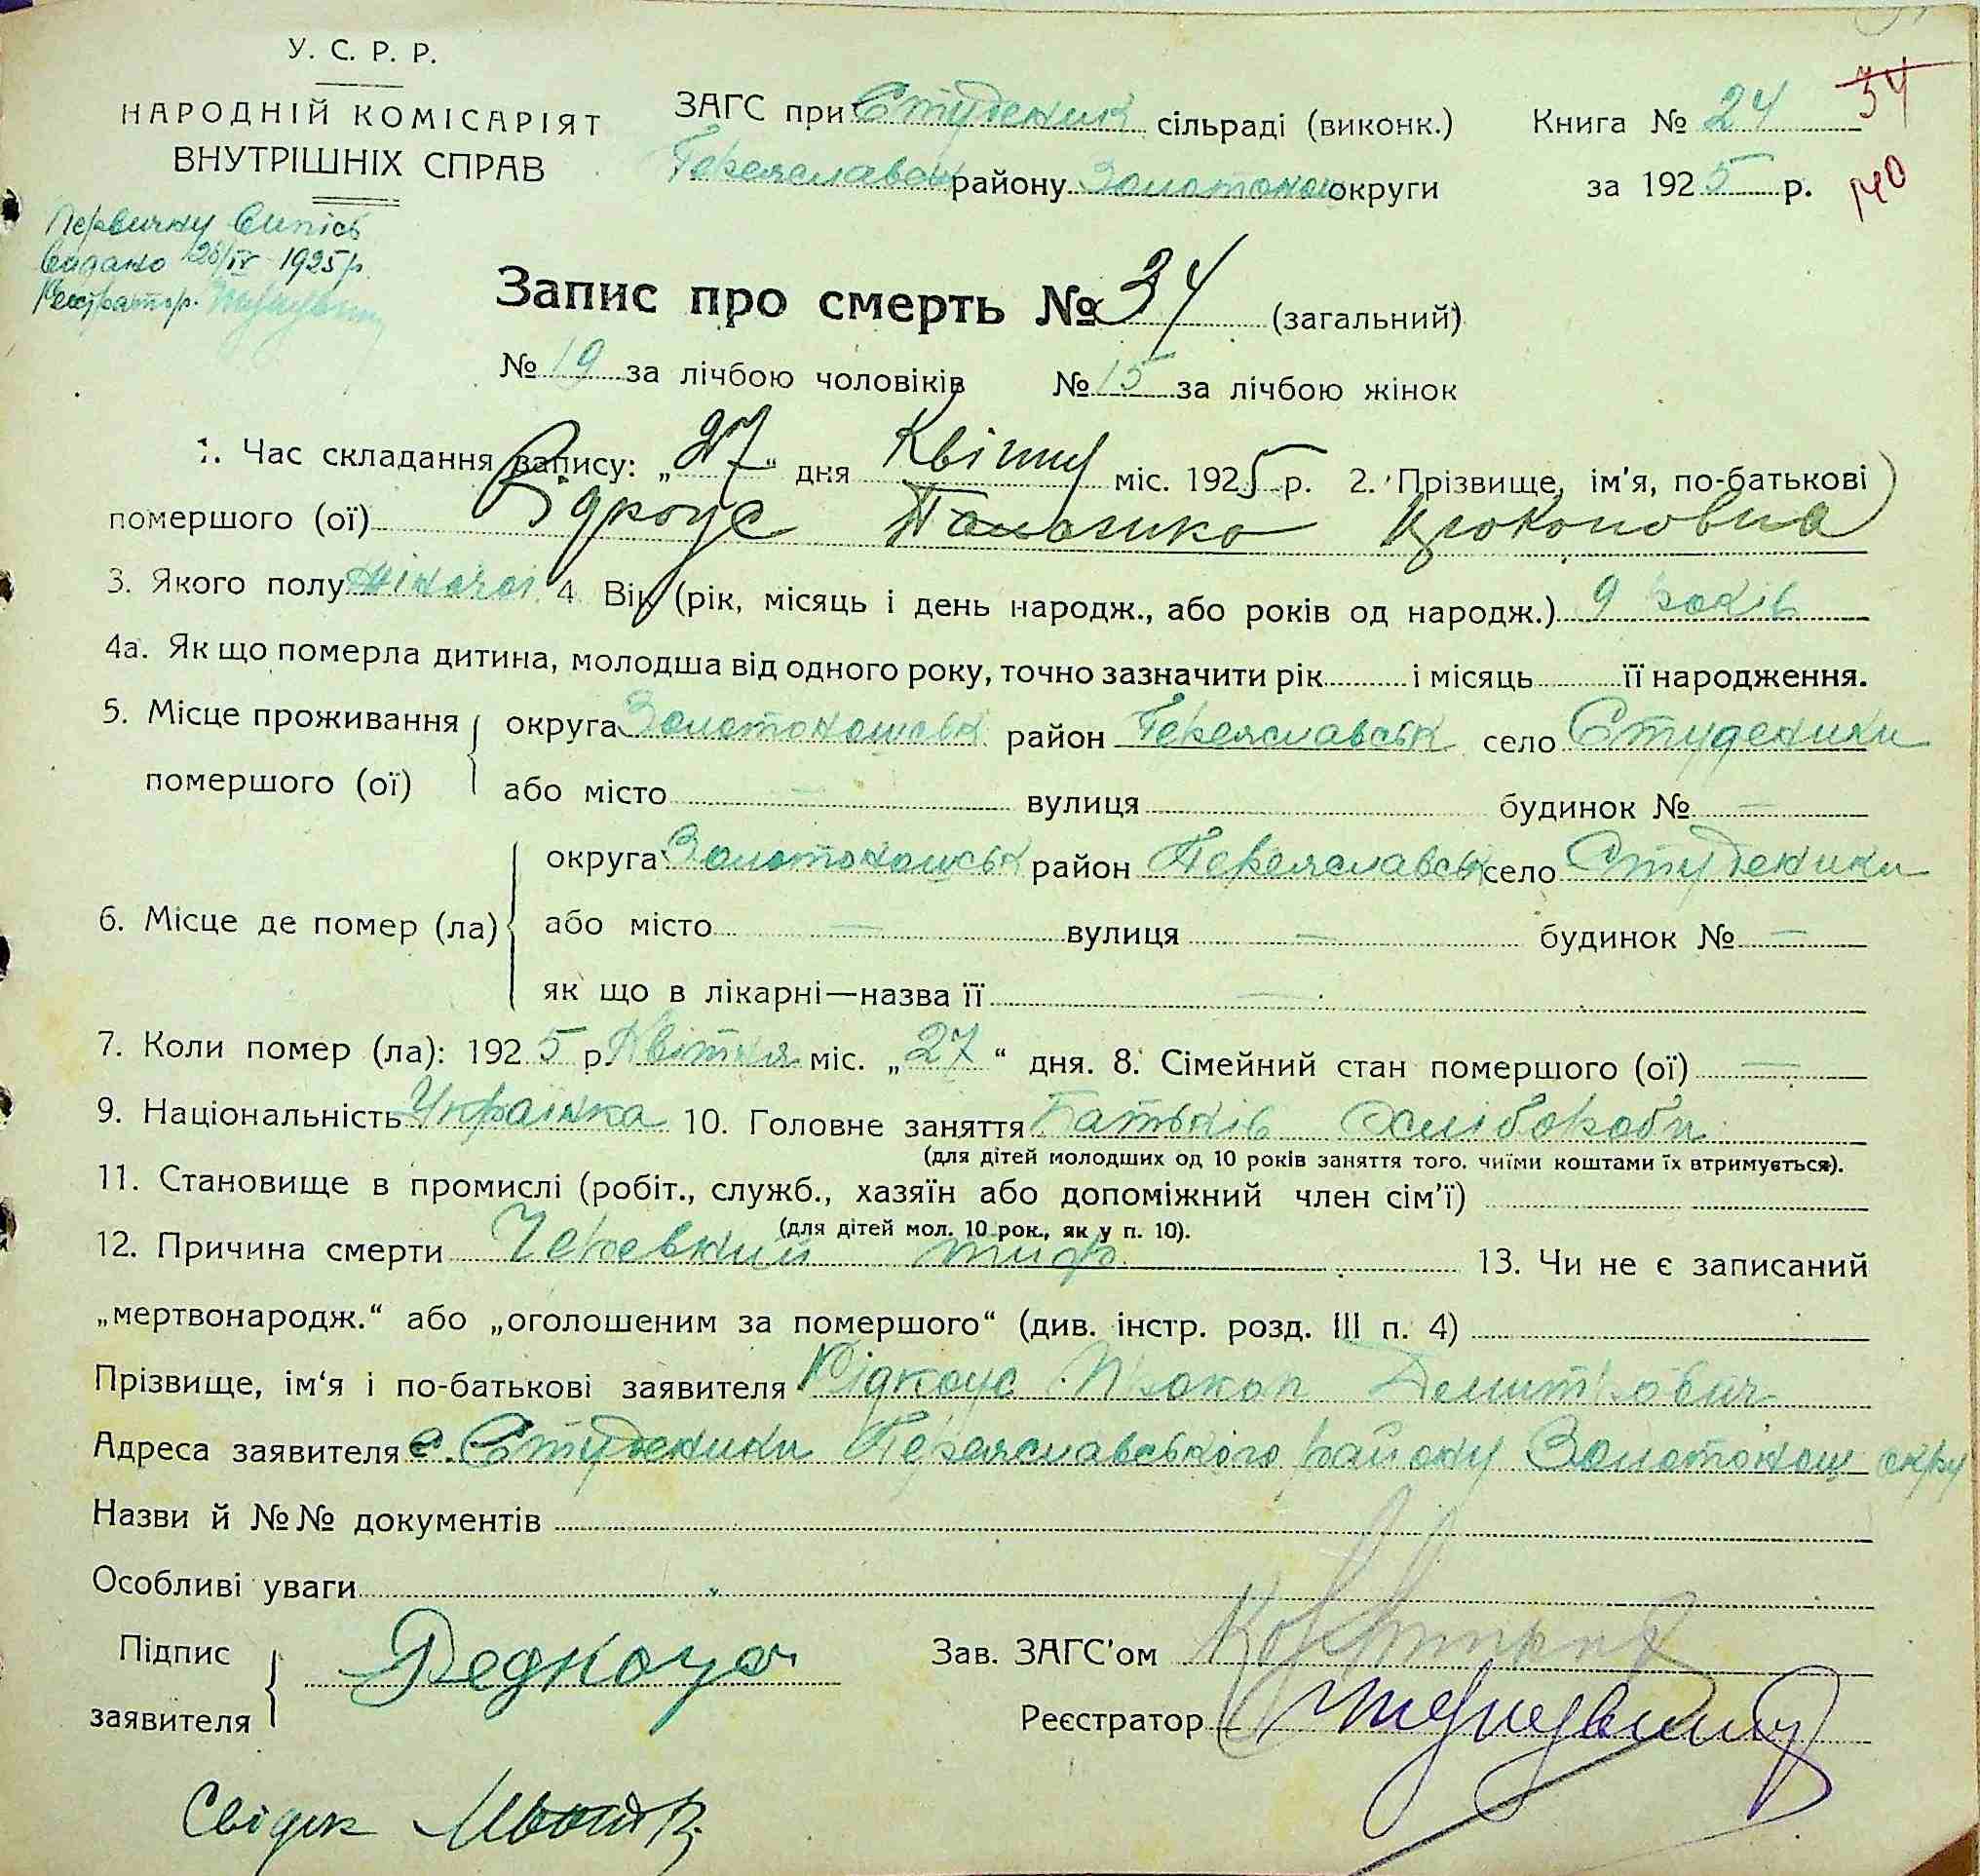 У. С. Р. Р.
НАРОДНІЙ КОМІСАРІЯТ
ВНУТРІШНІХ СПРАВ
ЗАГС при Студеник сільраді (виконк.)
Переяславськ району Золотонош округи
Книга № 24 34
за 1925 р. 140
Первичну Випісь
видано 28/IV 1925 р.
Реєстратор
Запис про смерть № 34 (загальний)
№ 19 за лічбою чоловіків № 15 за лічбою жінок
1. Час складання запису: „27“ дня Квітня міс. 1925 р. 2. Прізвище, ім'я, по-батькові
помершого (ої) Рідкоус Прокоповна
3. Якого полу жіночої 4. Вік (рік, місяць і день народж., або років од народж.) 9 років
4а. Як що померла дитина, молодша від одного року, точно зазначити рік і місяць її народження.
5. Місце проживання помершого (ої) округа Золотоношськ район Переяславськ село Студеники
або місто — вулиця будинок № —
6. Місце де помер (ла) округа Золотоношськ район Переяславськ село Студеники
або місто — вулиця — будинок № —
як що в лікарні—назва її —
7. Коли помер (ла): 1925 р. Квітня міс. „27“ дня. 8. Сімейний стан помершого (ої) —
9. Національність Українка 10. Головне заняття Батьків Хлібороби
(для дітей молодших од 10 років заняття того, чиїми коштами їх втримується).
11. Становище в промислі (робіт., служб., хазяїн або допоміжний член сім'ї)
(для дітей мол. 10 рок., як у п. 10).
12. Причина смерти Черевний тиф 13. Чи не є записаний
„мертвонародж.“ або „оголошеним за помершого“ (див. інстр. розд. III п. 4)
Прізвище, ім'я і по-батькові заявителя Рідкоус Прокоп Демитрович
Адреса заявителя с. Студеники Переяславського району Золотонош окру
Назви й №№ документів
Особливі уваги
Підпис заявителя Редкоус
Зав. ЗАГС'ом
Реєстратор
Свідок